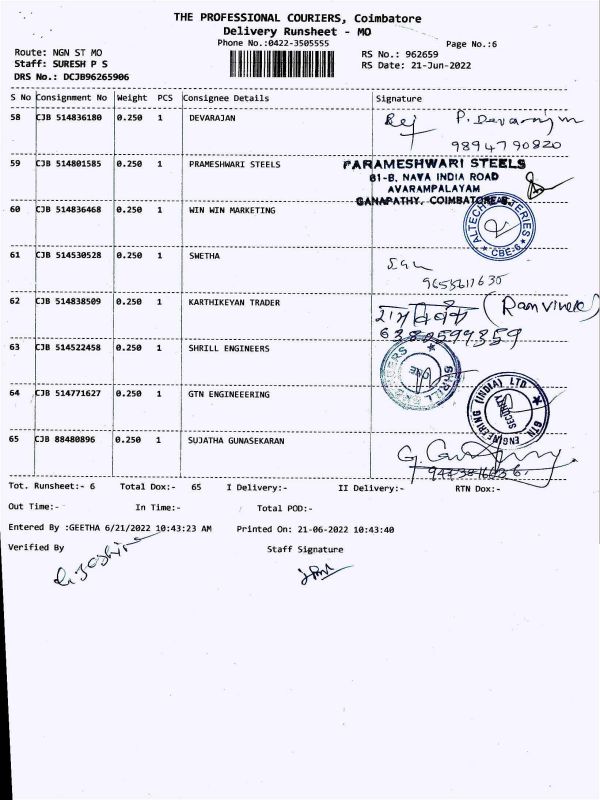 THE PROFESSIONAL COURIERS, Coimbatore
Delivery Runsheet - MO
Phone No.:0422-3505555
Page No.:6
Route: NGN ST MO
RS No.: 962659
Staff: SURESH P S
RS Date: 21-Jun-2022
DRS No.: DCJB96265906
S No Consignment No Weight PCS Consignee Details Signature
58 CJB 514836180 0.250 1 DEVARAJAN
P. Devarajan
9894790820
59 CJB 514801585 0.250 1 PRAMESHWARI STEELS
PARAMESHWARI STEELS
61-B, NAVA INDIA ROAD
AVARAMPALAYAM
GANAPATHY, COIMBATORE-6.
60 CJB 514836468 0.250 1 WIN WIN MARKETING
CBE-6
61 CJB 514530528 0.250 1 SWETHA
62 CJB 514838509 0.250 1 KARTHIKEYAN TRADER
राम विवेक (Ram vivek)
63 CJB 514522458 0.250 1 SHRILL ENGINEERS
SHRILL ENGINEERS
CBE
64 CJB 514771627 0.250 1 GTN ENGINEEERING
GTN ENGINEERING (INDIA) LTD
SECURITY
65 CJB 88480896 0.250 1 SUJATHA GUNASEKARAN
Tot. Runsheet:- 6 Total Dox:- 65 I Delivery:- II Delivery:- RTN Dox:-
Out Time:- In Time:- Total POD:-
Entered By :GEETHA 6/21/2022 10:43:23 AM Printed On: 21-06-2022 10:43:40
Verified By Staff Signature